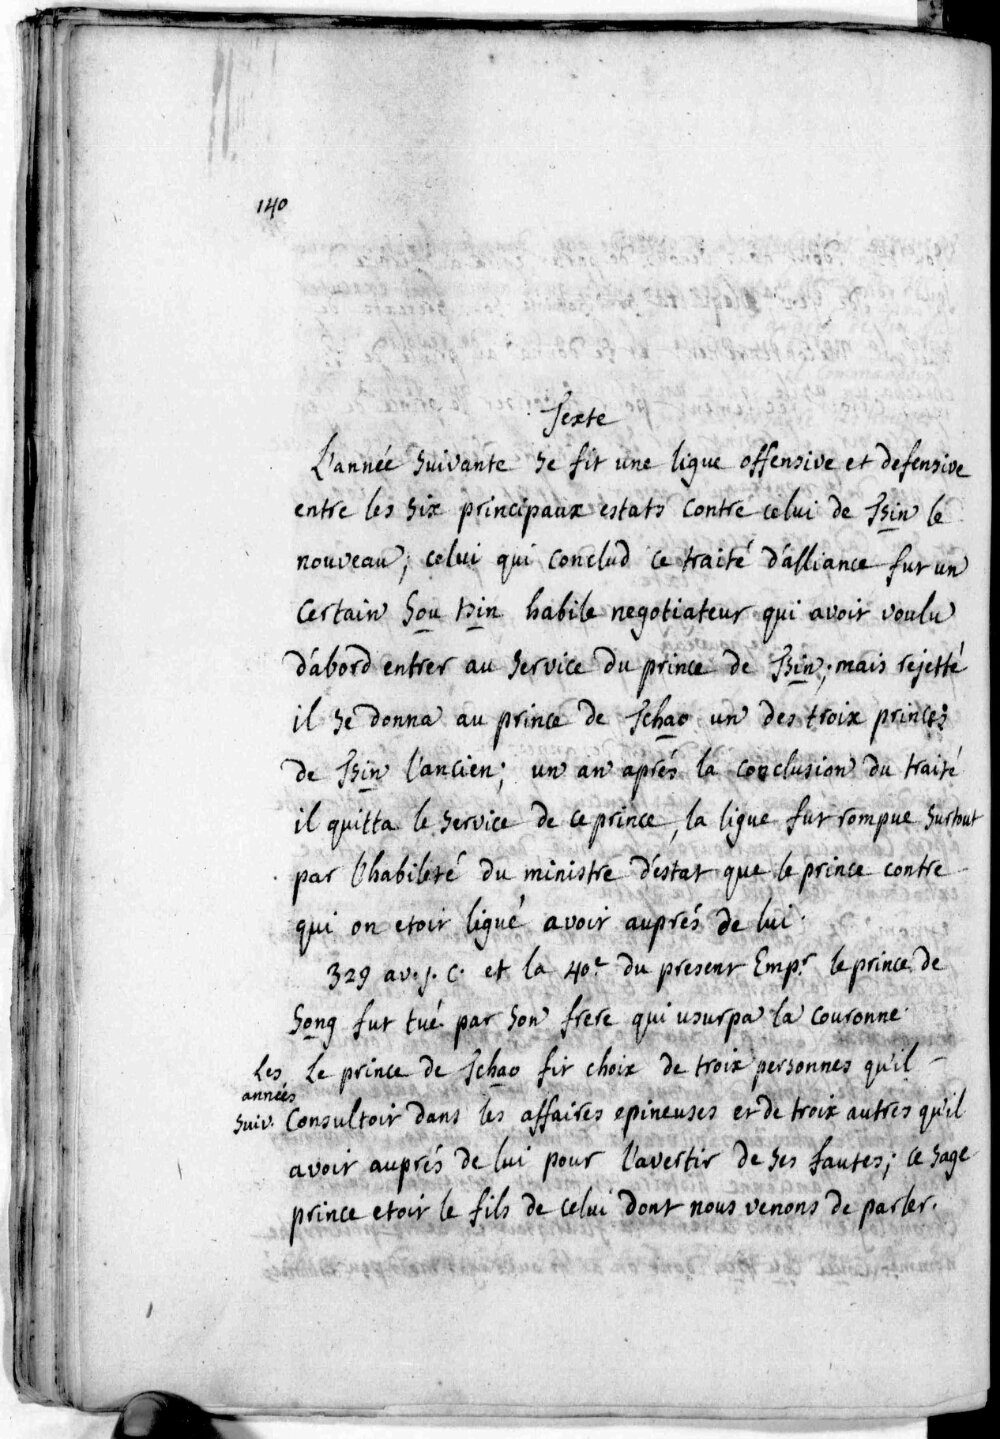 140
Texte
L'année suivante se fit une ligue offensive et defensive
entre les six principaux estats contre celui de Tsin le
nouveau; celui qui conclud ce traité d'alliance fut un
certain Sou tsin habile negotiateur qui avoit voulu
d'abord entrer au service du prince de Tsin; mais rejetté
il se donna au prince de Tchao un des troix princes
de Tsin l'ancien; un an aprés la conclusion du traité
il quitta le service de ce prince, la ligue fut rompue surtout
par l'habileté du ministre d'estat que le prince contre
qui on etoit ligué avoit auprés de lui.
329 av. J. C. et la 40e du present Empr le prince de
Song fut tué par son frere qui usurpa la couronne.
Les années suiv. Le prince de Tchao fit choix de troix personnes qu'il
consultoit dans les affaires epineuses et de troix autres qu'il
avoit auprés de lui pour l'avertir de ses fautes; ce sage
prince etoit le fils de celui dont nous venons de parler.